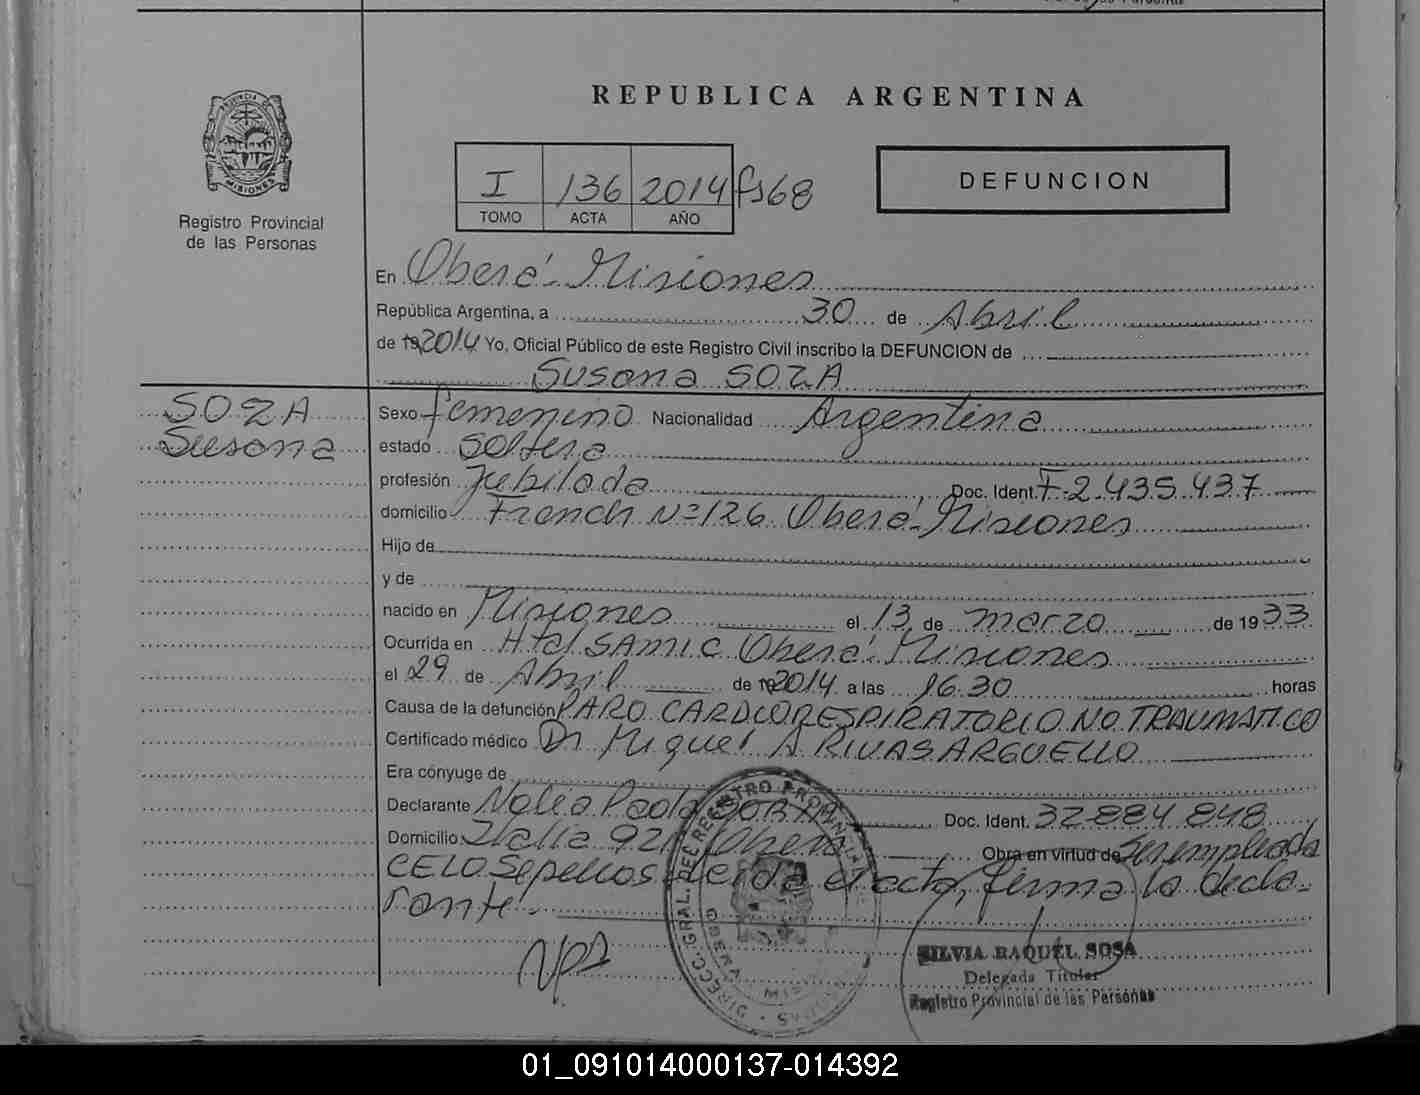 REPUBLICA ARGENTINA
PROVINCIA DE
MISIONES
Registro Provincial
de las Personas
I 136 2014 fs 68
TOMO ACTA AÑO
DEFUNCION
En Oberá - Misiones
República Argentina, a 30 de Abril
de 19 2014 Yo, Oficial Público de este Registro Civil inscribo la DEFUNCION de
Susana SOZA
SOZA
Susana
Sexo femenino Nacionalidad Argentina
estado soltera
profesión Jubilada Doc. Ident. F-2.435.437
domicilio French Nº 126 Oberá - Misiones
Hijo de
y de
nacido en Misiones el 13 de marzo de 1933
Ocurrida en Htal SAMIC Oberá - Misiones
el 29 de Abril de 19 2014 a las 16.30 horas
Causa de la defunción PARO CARDIORESPIRATORIO NO TRAUMATICO
Certificado médico Dr Miguel A RIVAS ARGUELLO
Era cónyuge de
Declarante Nalia Paola Doc. Ident. 32.884.848
Domicilio Italia Oberá Obra en virtud de ser empleada
CELO Sepelios Leída el acta, firma la decla-
rante.-
DIRECC. GRAL. DEL REGISTRO PROVINCIAL
SILVIA RAQUEL SOSA
Delegada Titular
Registro Provincial de las Personas
01_091014000137-014392